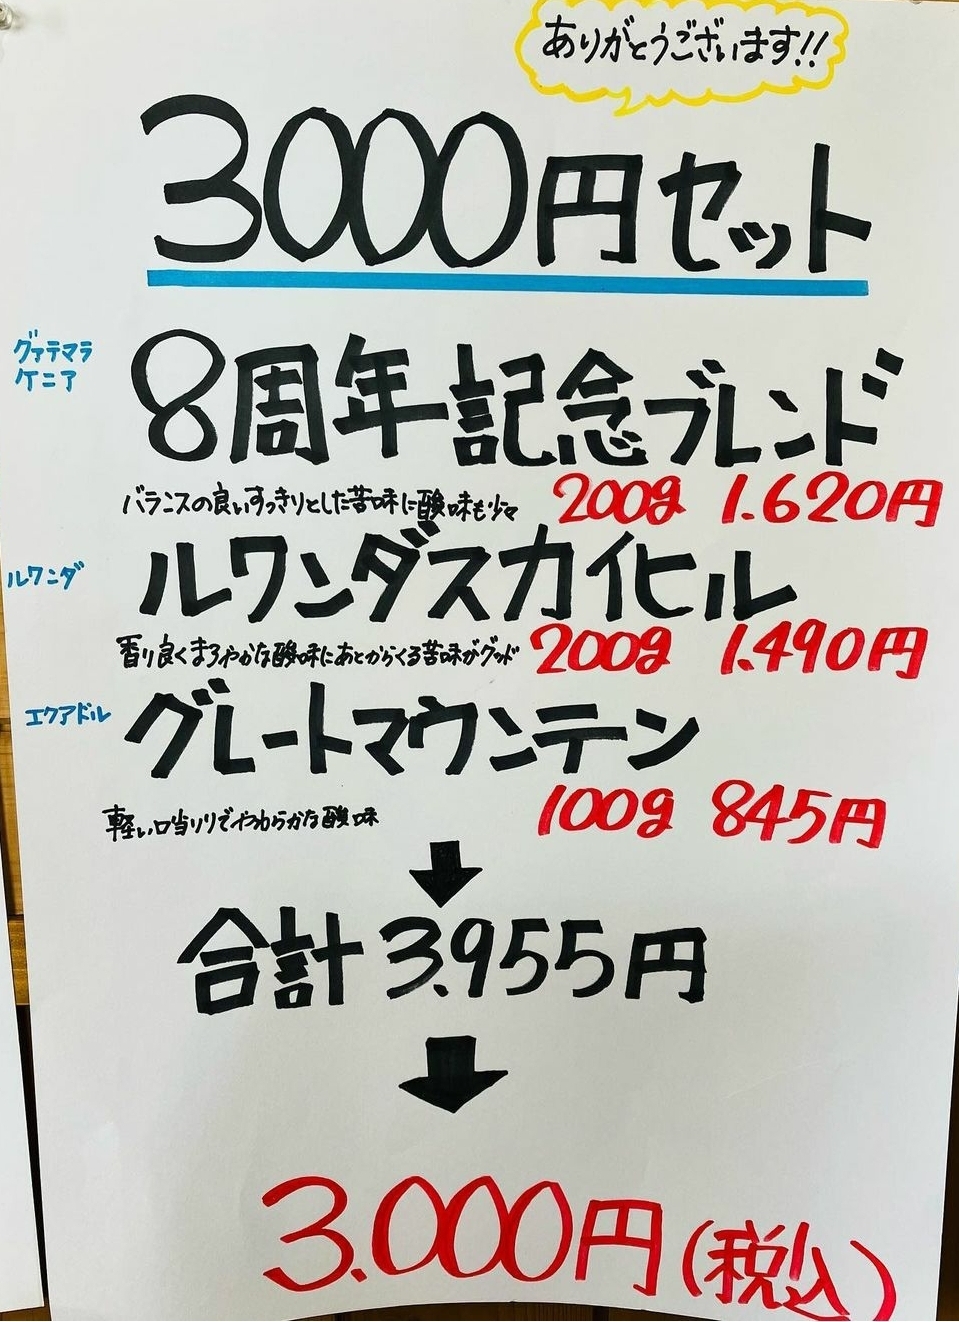 ありがとうございます!!
3000円セット
グァテマラ
ケニア
8周年記念ブレンド
バランスの良いすっきりとした苦味に酸味も少々
200g 1.620円
ルワンダ
ルワンダスカイヒル
香り良くまろやかな酸味にあとからくる苦味がグッド
200g 1.490円
エクアドル
グレートマウンテン
軽い口当りでやわらかな酸味
100g 845円
合計 3.955円
3.000円(税込)